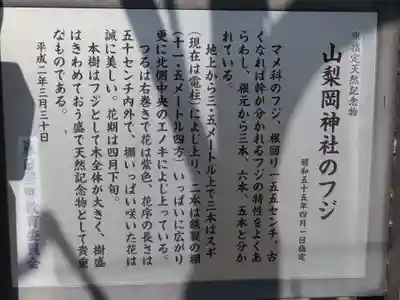 県指定天然記念物
山梨岡神社のフジ
昭和五十五年四月一日指定
マメ科のフジ、根回り一五五センチ、古
くなれば幹が分かれるフジの特性をよくあ
らわし、根元から三本、六本、五本と分か
れている。
地上から三・五メートル上で三本はスギ
(現在は電柱)によじ上り、二本は鉄製の棚
(十一・五メートル四方)いっぱいに広がり
更に北側中央のエノキによじ上っている。
つるは右巻きで花は紫色、花序の長さは
五十センチ内外で、棚いっぱい咲いた花は
誠に美しい。花期は四月下旬。
本樹はフジとして木全体が大きく、樹盛
はきわめておう盛で天然記念物として貴重
なものである。
平成二年三月三十日
教育委員会